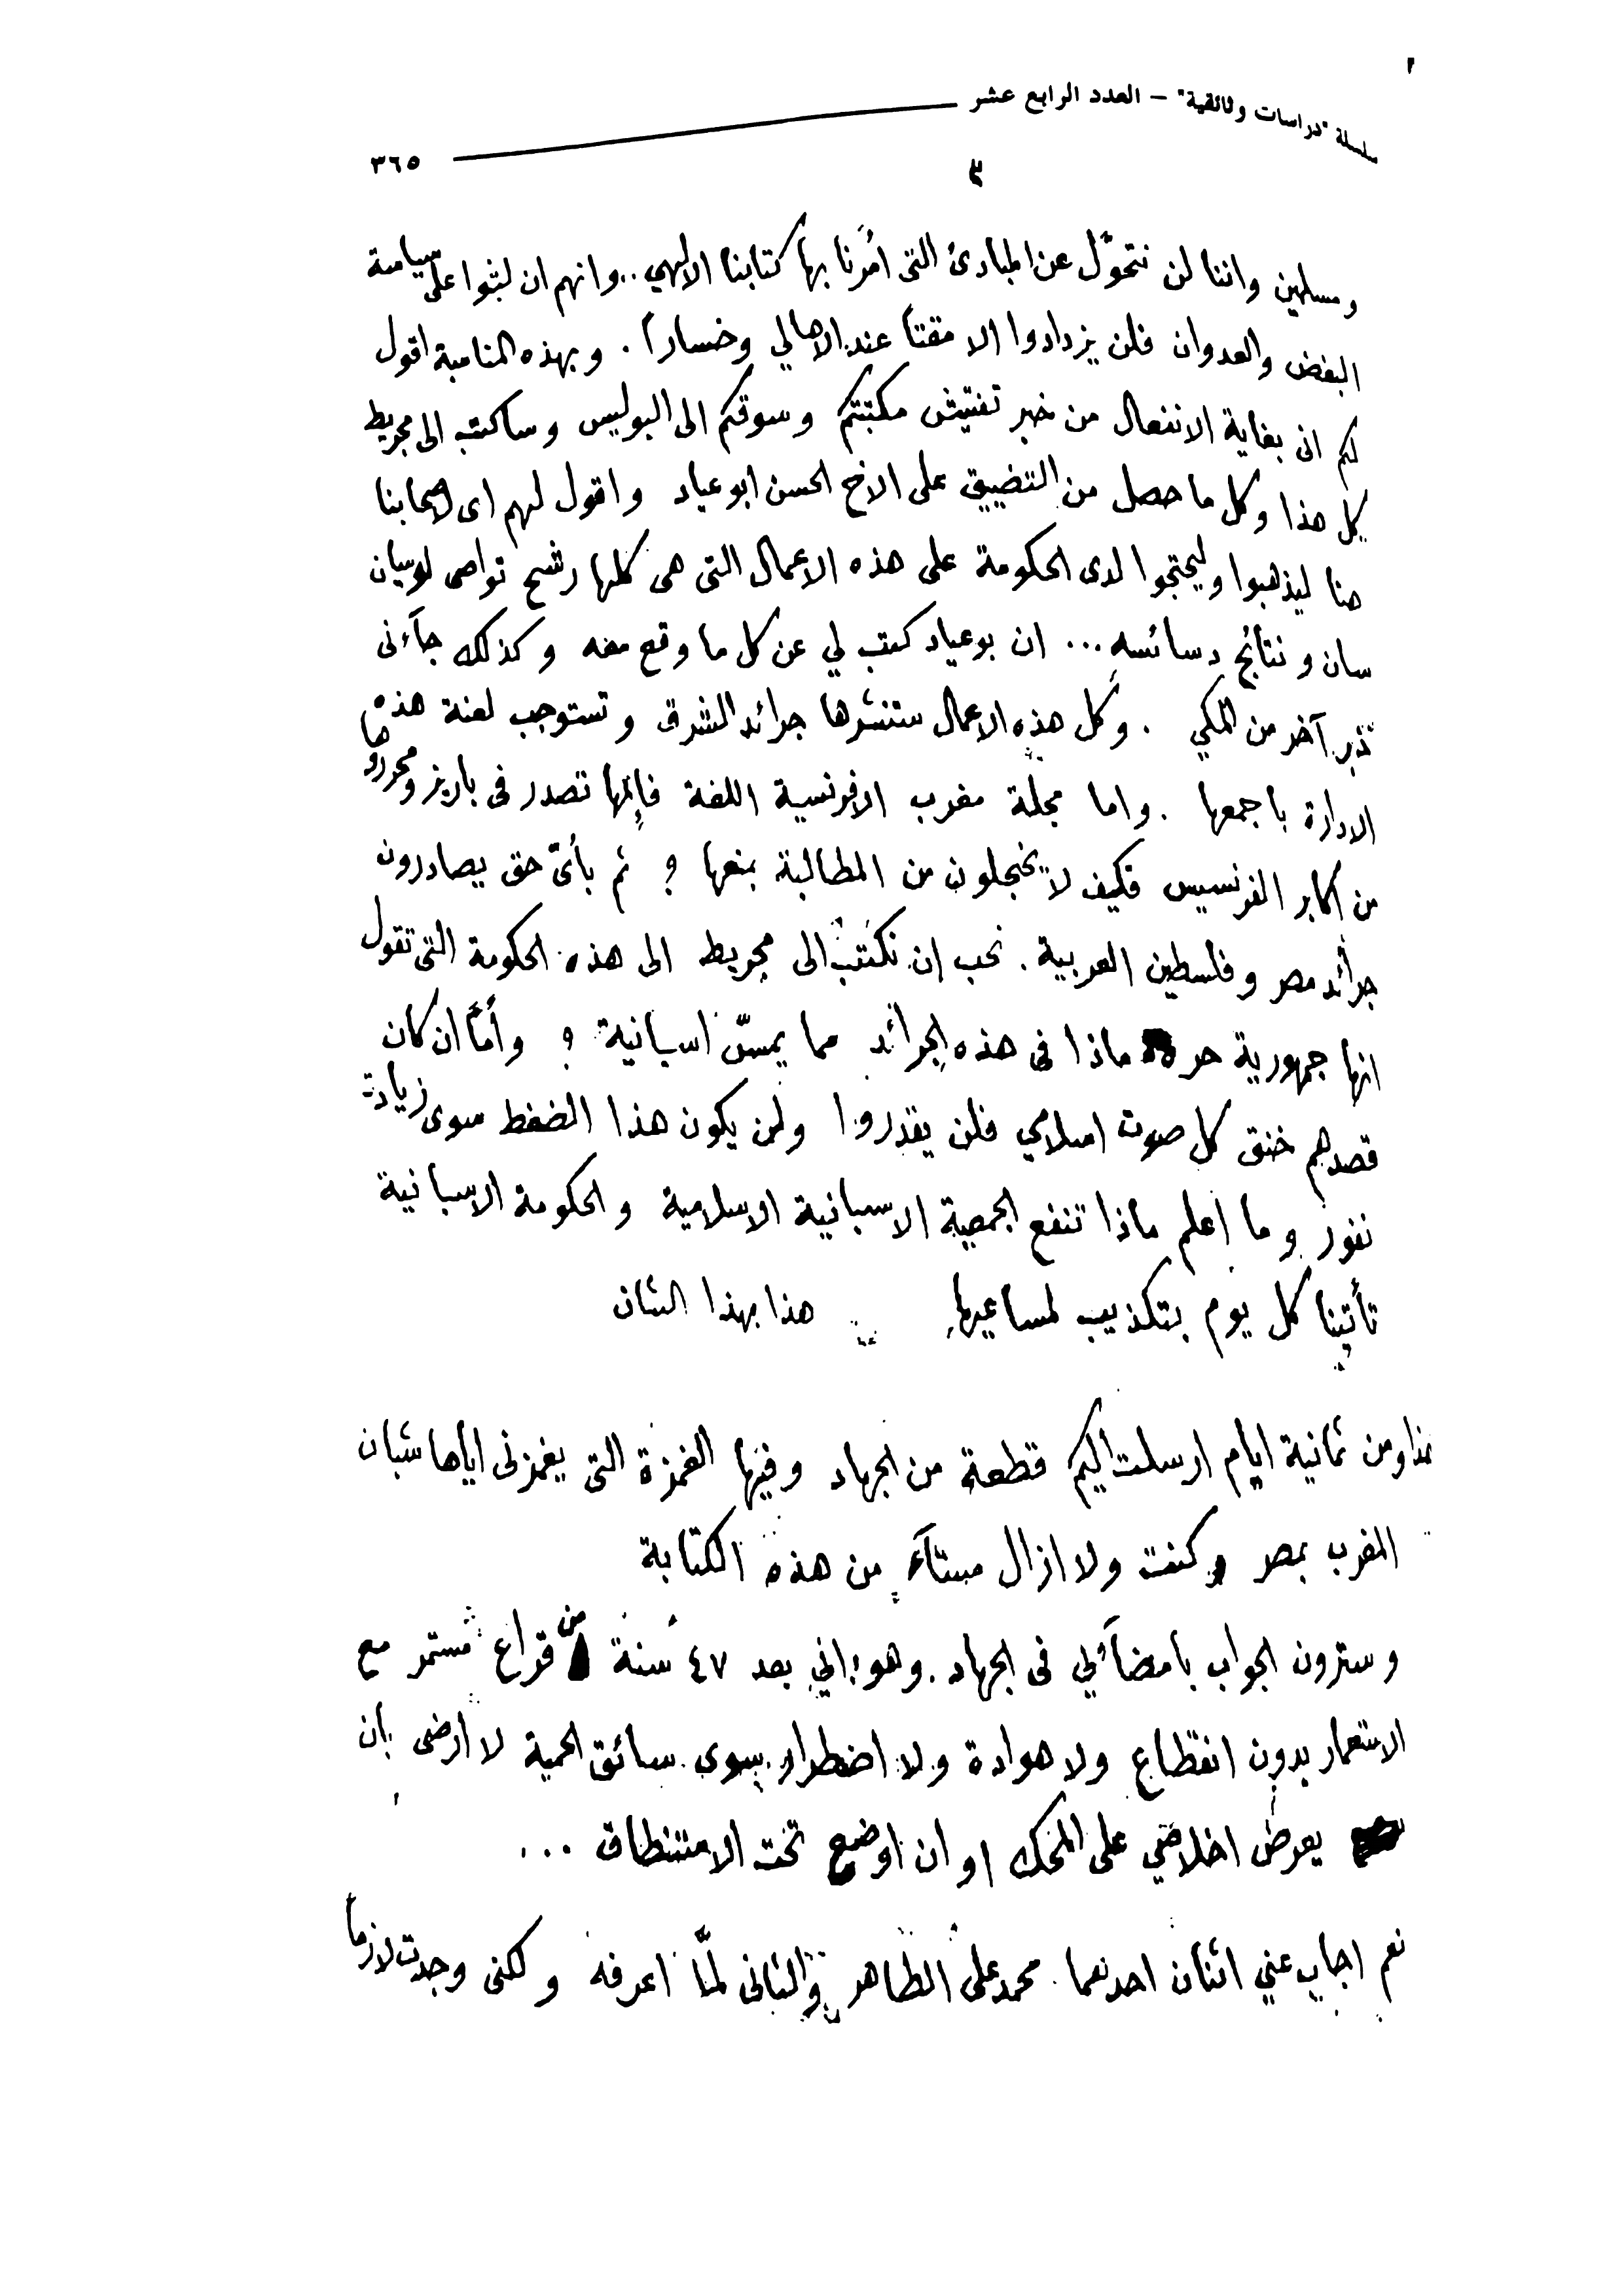 سلسلة "دراسات وثائقية" – العدد الرابع عشر
٣٦٥
٣
ومسلمين واننا لن نتحوّل عن المبادئ التى أُمرنا بها كتابنا الالهي .. وانهم ان لبثوا على سياسة
البغض والعدوان فلن يزدادوا الا مقتاً عند الاهالي وخساراً . وبهذه المناسبة اقول
لكم انى بغاية الانفعال من خبر تفتيش مكتبتكم وسوقكم الى البوليس وساكتب الى مجريط
بكل هذا وكل ما حصل من التضييق على الاخ الحسن ابو عياد واقول لهم اى لاصحابنا
هنا ليذهبوا وليحتجوا لدى الحكومة على هذه الاعمال التى هى كلها رشح نواصى لوسيان
سان ونتائج دسائسه ... ان بوعياد كتب لي عن كل ما وقع معه وكذلك جآءنى
آخر من المكي . وكل هذه الاعمال ستنشرها جرائد الشرق وتستوجب لعنة هذه
الادارة باجمعها . واما مجلة مغرب الافرنسية اللغة فإنها تصدر فى باريز ومحرروها
من اكابر الفرنسيس فكيف لا يخجلون من المطالبة بمنعها ؟ ثم بأىّ حق يصادرون
جرائد مصر وفلسطين العربية . نحب إن نكتب الى مجريط الى هذه الحكومة التى تقول
انها جمهورية حرة ماذا فى هذه الجرائد مما يمسّ اسبانية ؟ وأمّا ان كان
قصدهم خنق كل صوت اسلامي فلن يقدروا ولن يكون هذا الضغط سوى زيادة
نفور وما اعلم ماذا تنفع الجمعية الاسبانية الاسلامية والحكومة الاسبانية
تأتينا كل يوم بتكذيب لمساعيها هذا بهذا الشان
هذا ومن ثمانية ايام ارسلت اليكم قطعة من الجهاد وفيها الغمزة التى يغمزنى اياها شبان
المغرب بمصر وكنت ولا ازال مستآء من هذه الكتابة
وسترون الجواب بامضآئي فى الجهاد . وهو : اني بعد ٤٧ سنة من قراع مستمر مع
الاستعمار بدون انقطاع ولا هوادة ولا اضطرار سوى سائق الحمية لا ارضى بان
يعرض اخلاصي على المحك او ان اوضع تحت الاستنطاق ...
نعم اجاب عني اثنان احدهما محمد على الطاهر والثانى لمّا اعرفه ولكنى وجدت لازماً